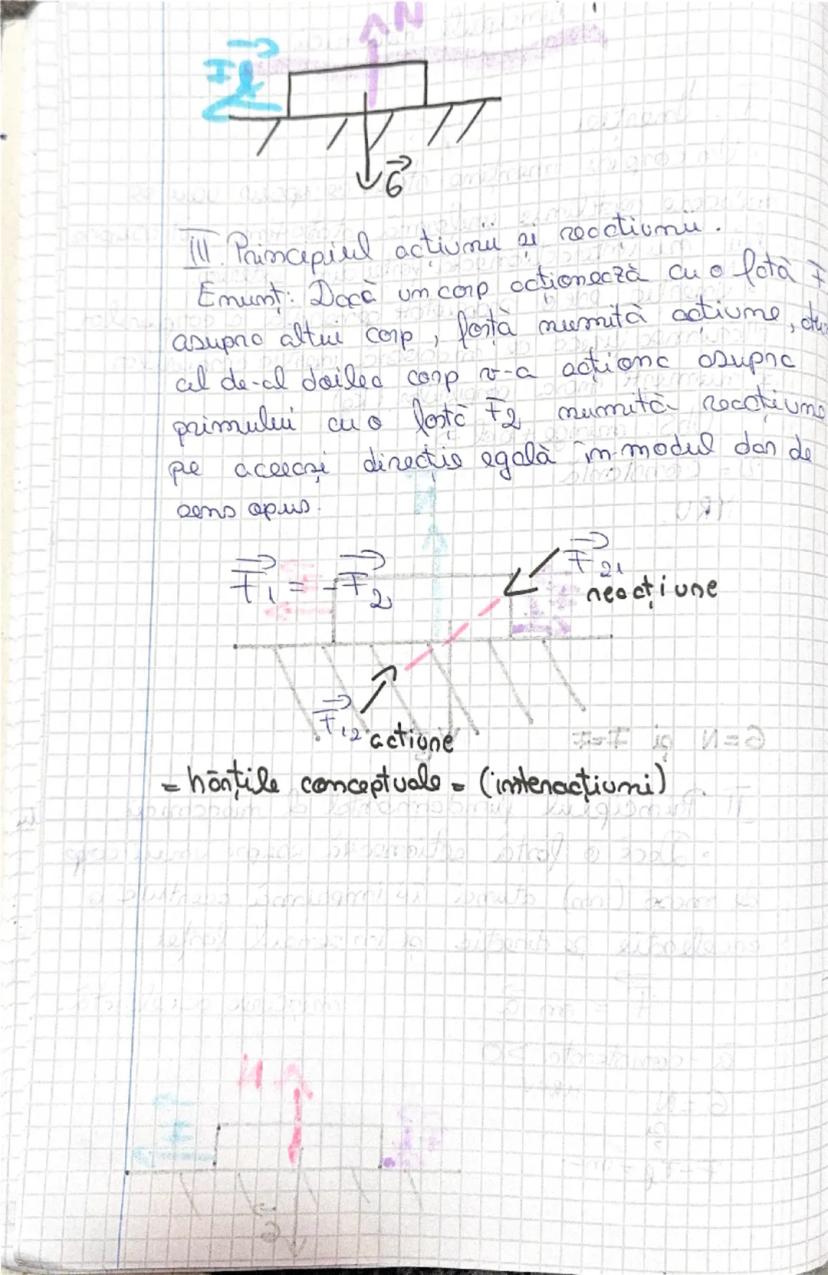 N
G
III. Principiul acțiunii și reacțiunii.
Enunț: Dacă un corp acționează cu o fotă F
asupra altui corp, forță numită acțiune, atu
al de-al doilea corp v-a acționa asupra
primului cu o forță F2 numită reacțiune
pe aceeași direcție egală în modul dar de
sens opus.
F1 = -F2
F21
reacțiune
F12
acțiune
= hărțile conceptuale = (interacțiuni)